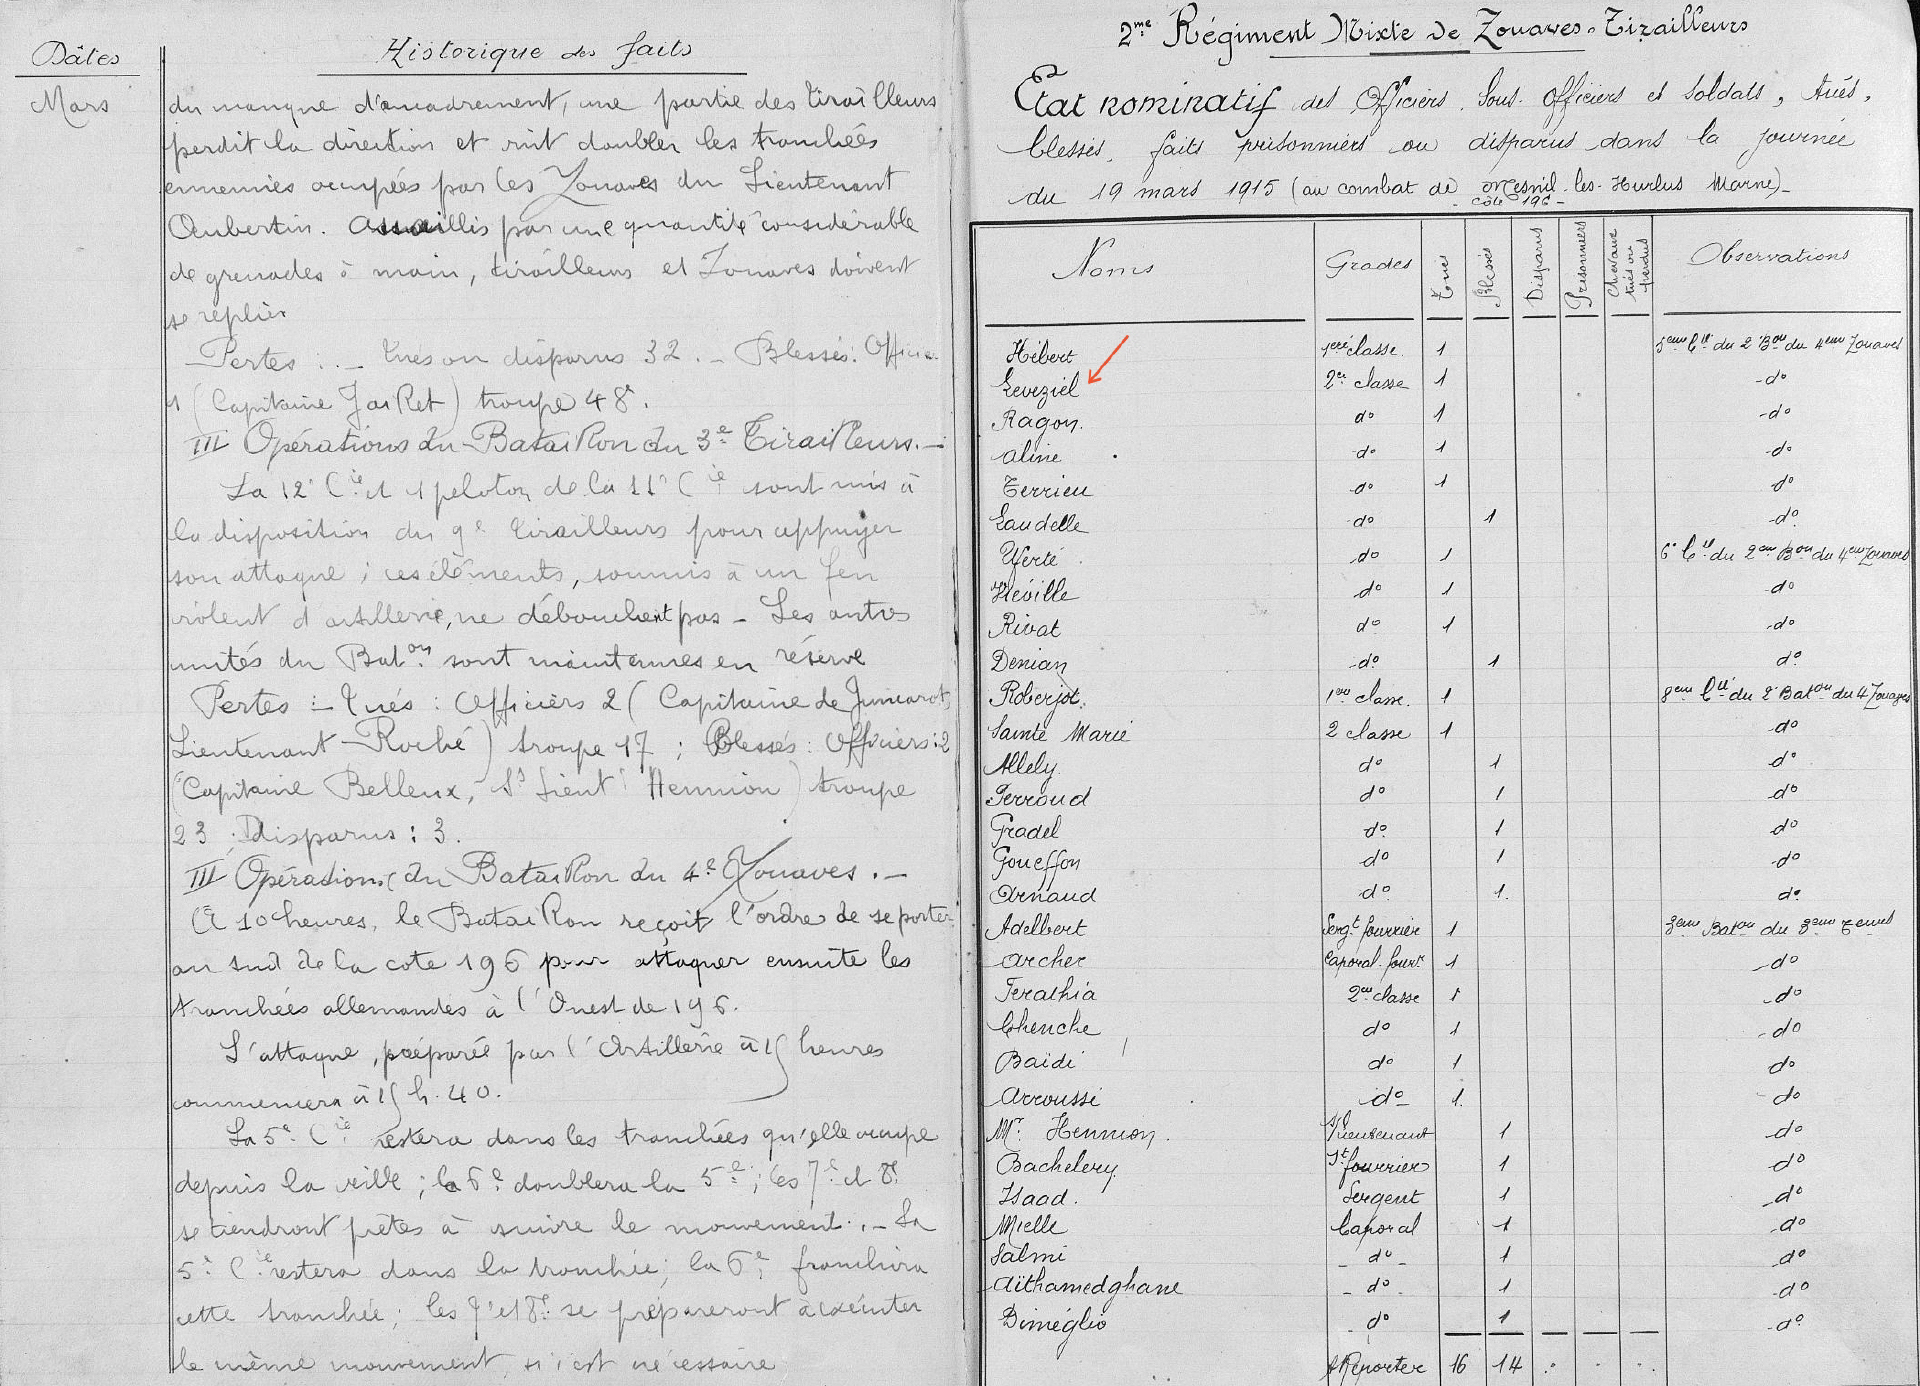 Dâtes
Historique des faits
Mars
du manque d'encadrement, une partie des tirailleurs
perdit la direction et vint doubler les tranchées
ennemies occupées par les Zouaves du Lieutenant
Aubertin. Assaillis par une quantité considérable
de grenades à main, tirailleurs et Zouaves doivent
se replier
Pertes .. _ tués ou disparus 32 . _ Blessés : Officier
1 (Capitaine Jacket) troupe 48.
III Opérations du Bataillon du 3e Tirailleurs. _
La 12e Cie et 1 peloton de la 11e Cie sont mis à
la disposition du 9e tirailleurs pour appuyer
son attaque ; ces éléments, soumis à un feu
violent d'artillerie, ne débouchent pas _ Les autres
unités du Baton sont maintenues en réserve
Pertes : _ tués : Officiers 2 (Capitaine de
Lieutenant Roché) troupe 17 ; Blessés : Officiers : 2
(Capitaine Belleux, Ss Lieutt Hennion) troupe
23 ; Disparus : 3.
III Opérations du Bataillon du 4e Zouaves . _
A 10 heures, le Bataillon reçoit l'ordre de se porter
au sud de la cote 196 pour attaquer ensuite les
tranchées allemandes à l'Ouest de 196.
L'attaque, préparée par l'Artillerie à 15 heures
commencera à 15 h. 40.
La 5e Cie restera dans les tranchées qu'elle occupe
depuis la veille ; la 6e doublera la 5e ; les 7e et 8e
se tiendront prêtes à suivre le mouvement. _ La
5e Cie restera dans la tranchée ; la 6e franchira
cette tranchée ; les 7e et 8e se prépareront à exécuter
le même mouvement, si c'est nécessaire
2me Régiment Mixte de Zouaves-Tirailleurs
Etat nominatif des Officiers, Sous-Officiers et Soldats, tués,
blessés, faits prisonniers ou disparus dans la journée
du 19 mars 1915 (au combat de Mesnil-les-Hurlus Marne) _
côte 196 _
Noms Grades Tués Blessés Disparus Prisonniers Chevaux tués ou perdus Observations
Hébert 1ere classe 1 5eme Cie du 2 Bon du 4eme Zouaves
Leveziel 2e classe 1 -do
Ragon do 1 -do
Aline do 1 -do
Terrien do 1 do
Laudelle do 1 -do
Ferté do 1 6e Cie du 2eme Bon du 4eme Zouaves
Héville do 1 do
Rivat do 1 -do
Denian do 1 do
Roberjot 1ere classe. 1 8eme Cie du 2e Baton du 4 Zouaves
Sainte Marie 2 classe 1 do
Allely do 1 do
Perroud do 1 do
Gradel do 1 do
Goueffon do 1 do
Arnaud do 1 do
Adelbert Sergt fourrier 1 3eme Baton du 3eme
Archer Caporal-fourr 1 -do
Ferathia 2eme classe 1 -do
Chenche do 1 -do
Baïdi do 1 do
Arroussi do 1 -do
Mr Hennion. S/lieutenant 1 -do
Bachelery Sgt fourrier 1 do
Isaad. Sergent 1 -do
Mielle Caporal 1 -do
Salmi - do - 1 do
Aïthamedghane - do - 1 do
Diméglio - do 1 -do
A Reporter 16 14